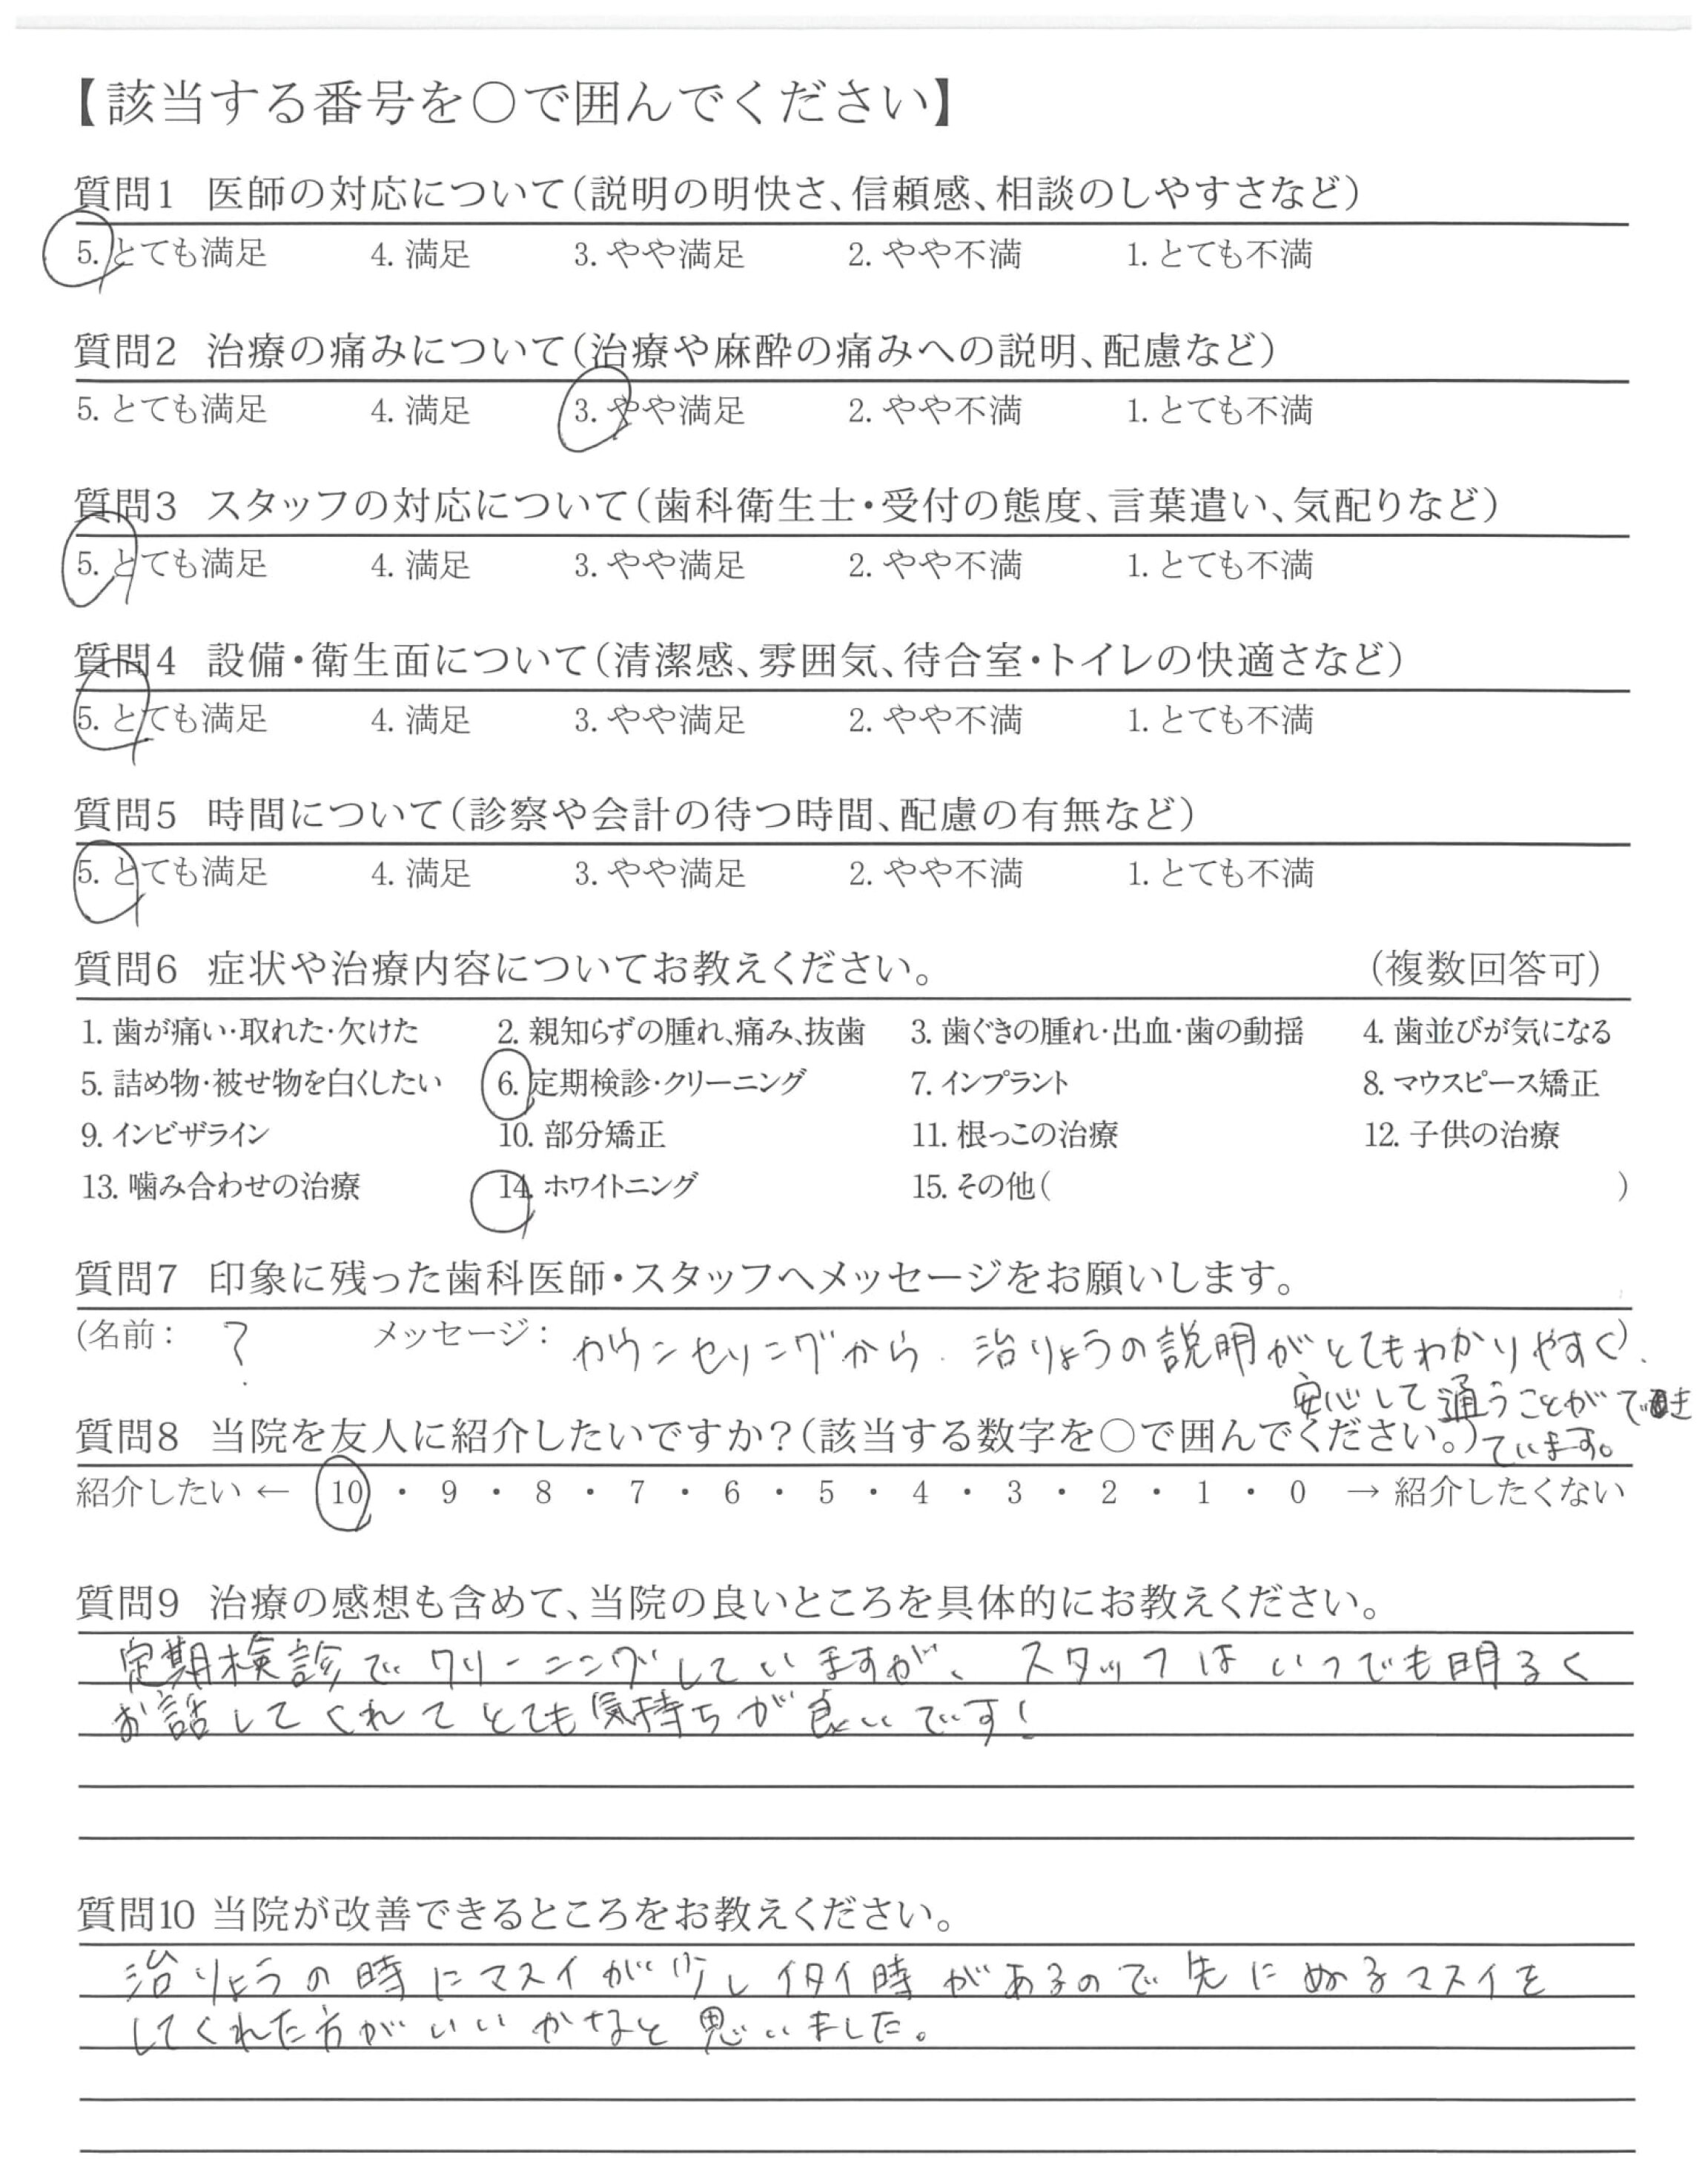 【該当する番号を○で囲んでください】
質問1 医師の対応について(説明の明快さ、信頼感、相談のしやすさなど)
5. とても満足 4. 満足 3. やや満足 2. やや不満 1. とても不満
質問2 治療の痛みについて(治療や麻酔の痛みへの説明、配慮など)
5. とても満足 4. 満足 3. やや満足 2. やや不満 1. とても不満
質問3 スタッフの対応について(歯科衛生士・受付の態度、言葉遣い、気配りなど)
5. とても満足 4. 満足 3. やや満足 2. やや不満 1. とても不満
質問4 設備・衛生面について(清潔感、雰囲気、待合室・トイレの快適さなど)
5. とても満足 4. 満足 3. やや満足 2. やや不満 1. とても不満
質問5 時間について(診察や会計の待つ時間、配慮の有無など)
5. とても満足 4. 満足 3. やや満足 2. やや不満 1. とても不満
質問6 症状や治療内容についてお教えください。 (複数回答可)
1. 歯が痛い・取れた・欠けた 2. 親知らずの腫れ、痛み、抜歯 3. 歯ぐきの腫れ・出血・歯の動揺 4. 歯並びが気になる
5. 詰め物・被せ物を白くしたい 6. 定期検診・クリーニング 7. インプラント 8. マウスピース矯正
9. インビザライン 10. 部分矯正 11. 根っこの治療 12. 子供の治療
13. 噛み合わせの治療 14. ホワイトニング 15. その他( )
質問7 印象に残った歯科医師・スタッフへメッセージをお願いします。
(名前: ? メッセージ: カウンセリングから、治りょうの説明がとてもわかりやすく)、
安心して通うことができ
ています。
質問8 当院を友人に紹介したいですか?(該当する数字を○で囲んでください。)
紹介したい ← 10 ・ 9 ・ 8 ・ 7 ・ 6 ・ 5 ・ 4 ・ 3 ・ 2 ・ 1 ・ 0 → 紹介したくない
質問9 治療の感想も含めて、当院の良いところを具体的にお教えください。
定期検診でクリーニングしていますが、スタッフはいつでも明るく
お話してくれてとても気持ちが良いです!
質問10 当院が改善できるところをお教えください。
治りょうの時にマスイが少しイタイ時があるので先にぬるマスイを
してくれた方がいいかなと思いました。